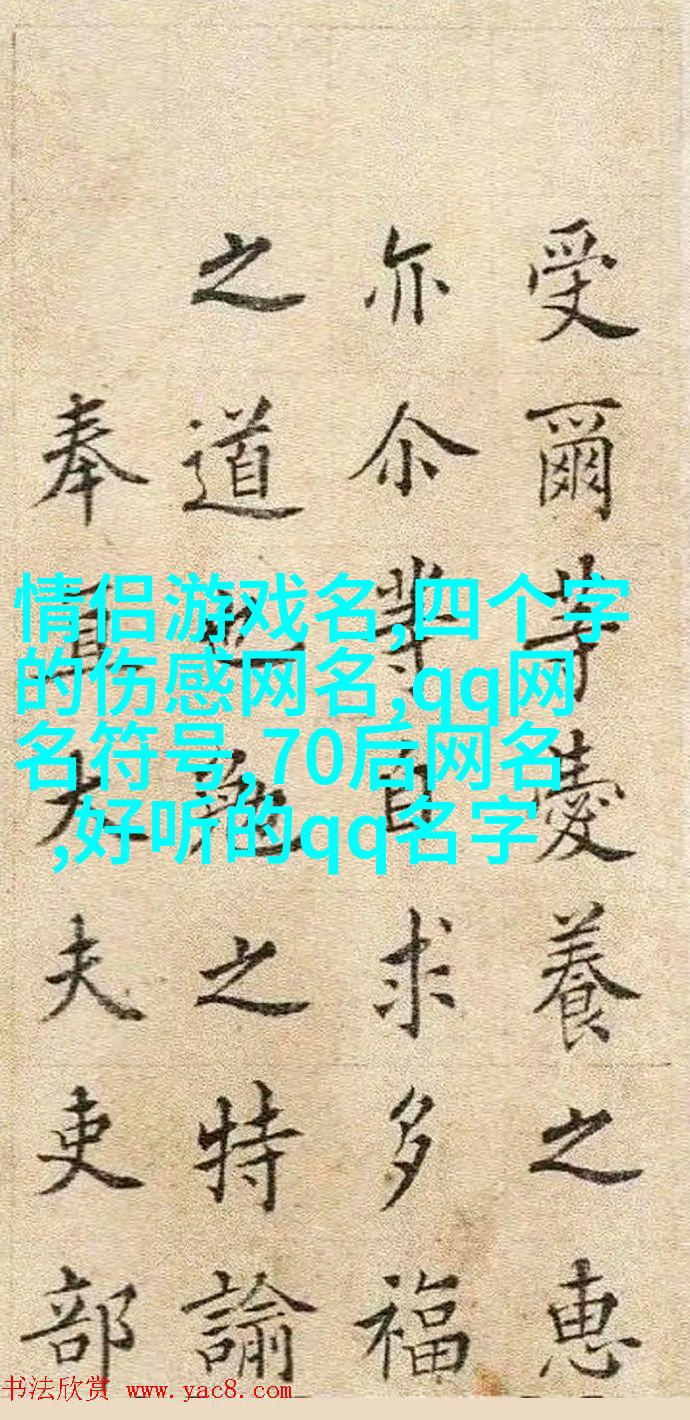 受爾等養之惠
亦尒等自求多福
之道也勉之特諭
奉直大夫吏部
情侣游戏名,四个字
的伤感网名,qq网
名符号,70后网名
,好听的qq名字
书法欣赏 www.yac8.com